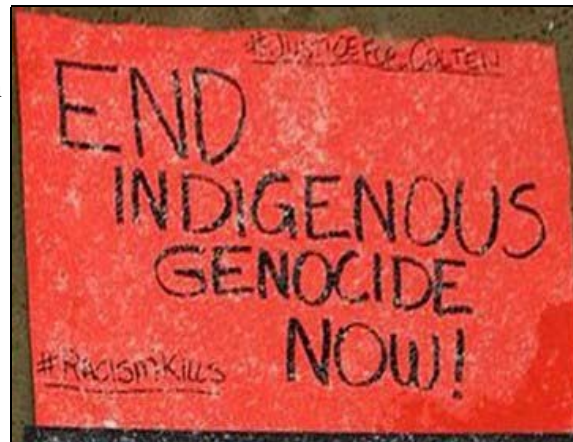 #JUSTICEFORCOLTEN
END
INDIGENOUS
GENOCIDE
NOW!
#RACISMKILLS